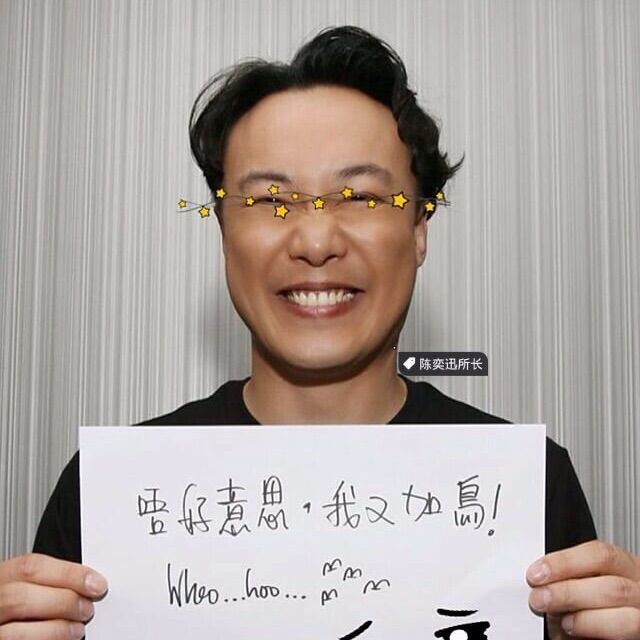 陈奕迅所长
唔好意思,我又加鳥!
Wheo...hoo...